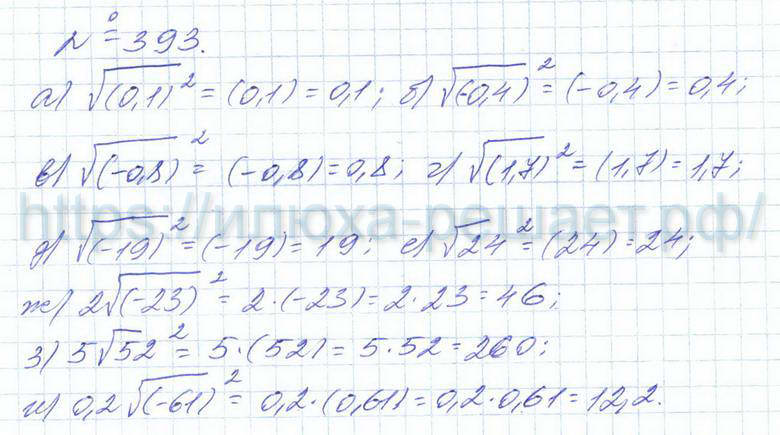 № 393.
а) √(0,1)² = (0,1) = 0,1; б) √(-0,4)² = (-0,4) = 0,4;
в) √(-0,8)² = (-0,8) = 0,8; г) √(1,7)² = (1,7) = 1,7;
https://илюха-решает.рф/
д) √(-19)² = (-19) = 19; е) √24² = (24) = 24;
ж) 2√(-23)² = 2·(-23) = 2·23 = 46;
з) 5√52² = 5·(52) = 5·52 = 260;
и) 0,2√(-61)² = 0,2·(0,61) = 0,2·0,61 = 12,2.